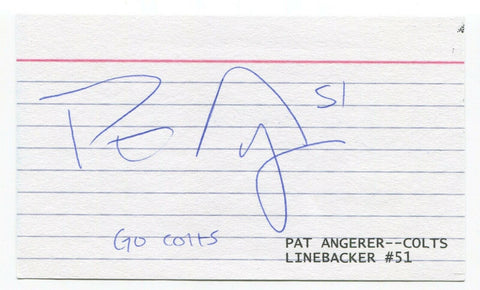 Pat Angerer 51
Go Colts
PAT ANGERER--COLTS
LINEBACKER #51